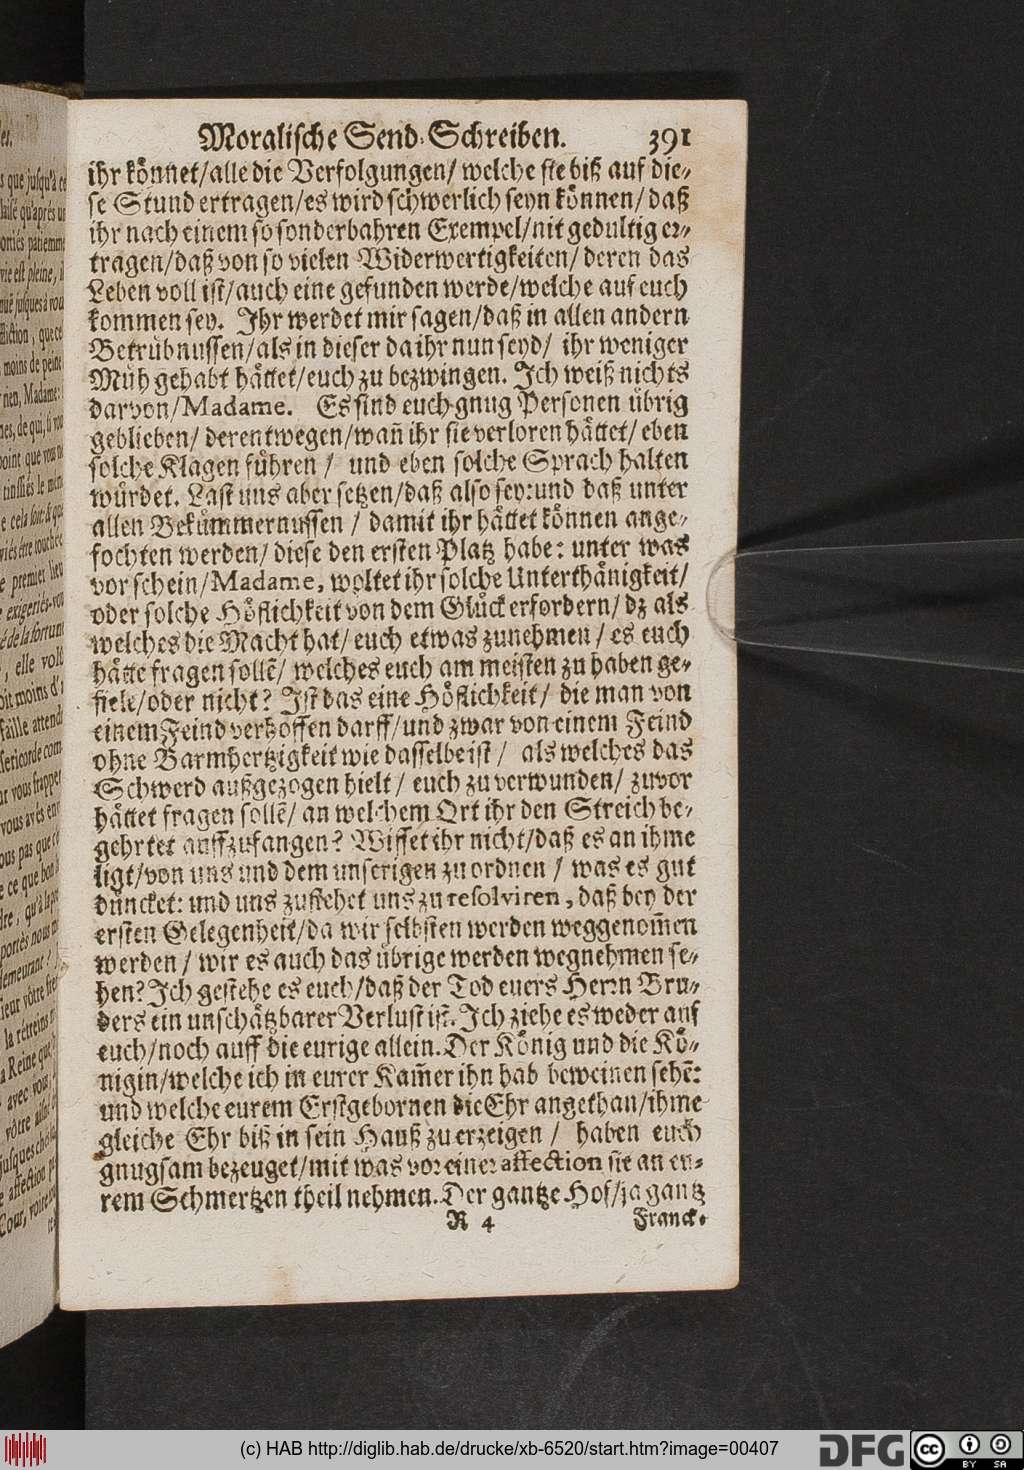 Moralische Send-Schreiben. 391
ihr könnet/alle die Verfolgungen/ welche sie biß auf die-
se Stund ertragen/es wird schwerlich seyn können/ daß
ihr nach einem so sonderbahren Exempel/nit gedultig er-
tragen/daß von so vielen Widerwertigkeiten/ deren das
Leben voll ist/auch eine gefunden werde/welche auf euch
kommen sey. Ihr werdet mir sagen/daß in allen andern
Betrübnussen/als in dieser da ihr nun seyd/ ihr weniger
Müh gehabt hättet/euch zu bezwingen. Ich weiß nichts
darvon/Madame. Es sind euch gnug Personen übrig
geblieben/ derentwegen/wañ ihr sie verloren hättet/ eben
solche Klagen führen / und eben solche Sprach halten
würdet. Last uns aber setzen/daß also sey: und daß unter
allen Bekümmernussen / damit ihr hättet können ange-
fochten werden/ diese den ersten Platz habe: unter was
vor schein/Madame, woltet ihr solche Unterthänigkeit/
oder solche Höflichkeit von dem Glück erfordern/ dz als
welches die Macht hat/ euch etwas zunehmen / es euch
hätte fragen sollẽ/ welches euch am meisten zu haben ge-
fiele/oder nicht? Ist das eine Höflichkeit/ die man von
einem Feind verhoffen darff/und zwar von einem Feind
ohne Barmhertzigkeit wie dasselbe ist / als welches das
Schwerd außgezogen hielt / euch zu verwunden/ zuvor
hättet fragen sollẽ/ an welchem Ort ihr den Streich be-
gehrtet auffzufangen? Wisset ihr nicht/daß es an ihme
ligt/von uns und dem unserigen zu ordnen / was es gut
düncket: und uns zustehet uns zu resolviren, daß bey der
ersten Gelegenheit/da wir selbsten werden weggenom̃en
werden / wir es auch das übrige werden wegnehmen se-
hen? Ich gestehe es euch/daß der Tod euers Herrn Bru-
ders ein unschätzbarer Verlust ist. Ich ziehe es weder auf
euch/noch auff die eurige allein. Der König und die Kö-
nigin/welche ich in eurer Kam̃er ihn hab beweinen sehẽ:
und welche eurem Erstgebornen die Ehr angethan/ihme
gleiche Ehr biß in sein Hauß zu erzeigen / haben euch
gnugsam bezeuget/mit was vor einer affection sie an eu-
rem Schmertzen theil nehmen. Der gantze Hof/ja gantz
R 4 Franck-
(c) HAB http://diglib.hab.de/drucke/xb-6520/start.htm?image=00407
DFG
cc BY SA